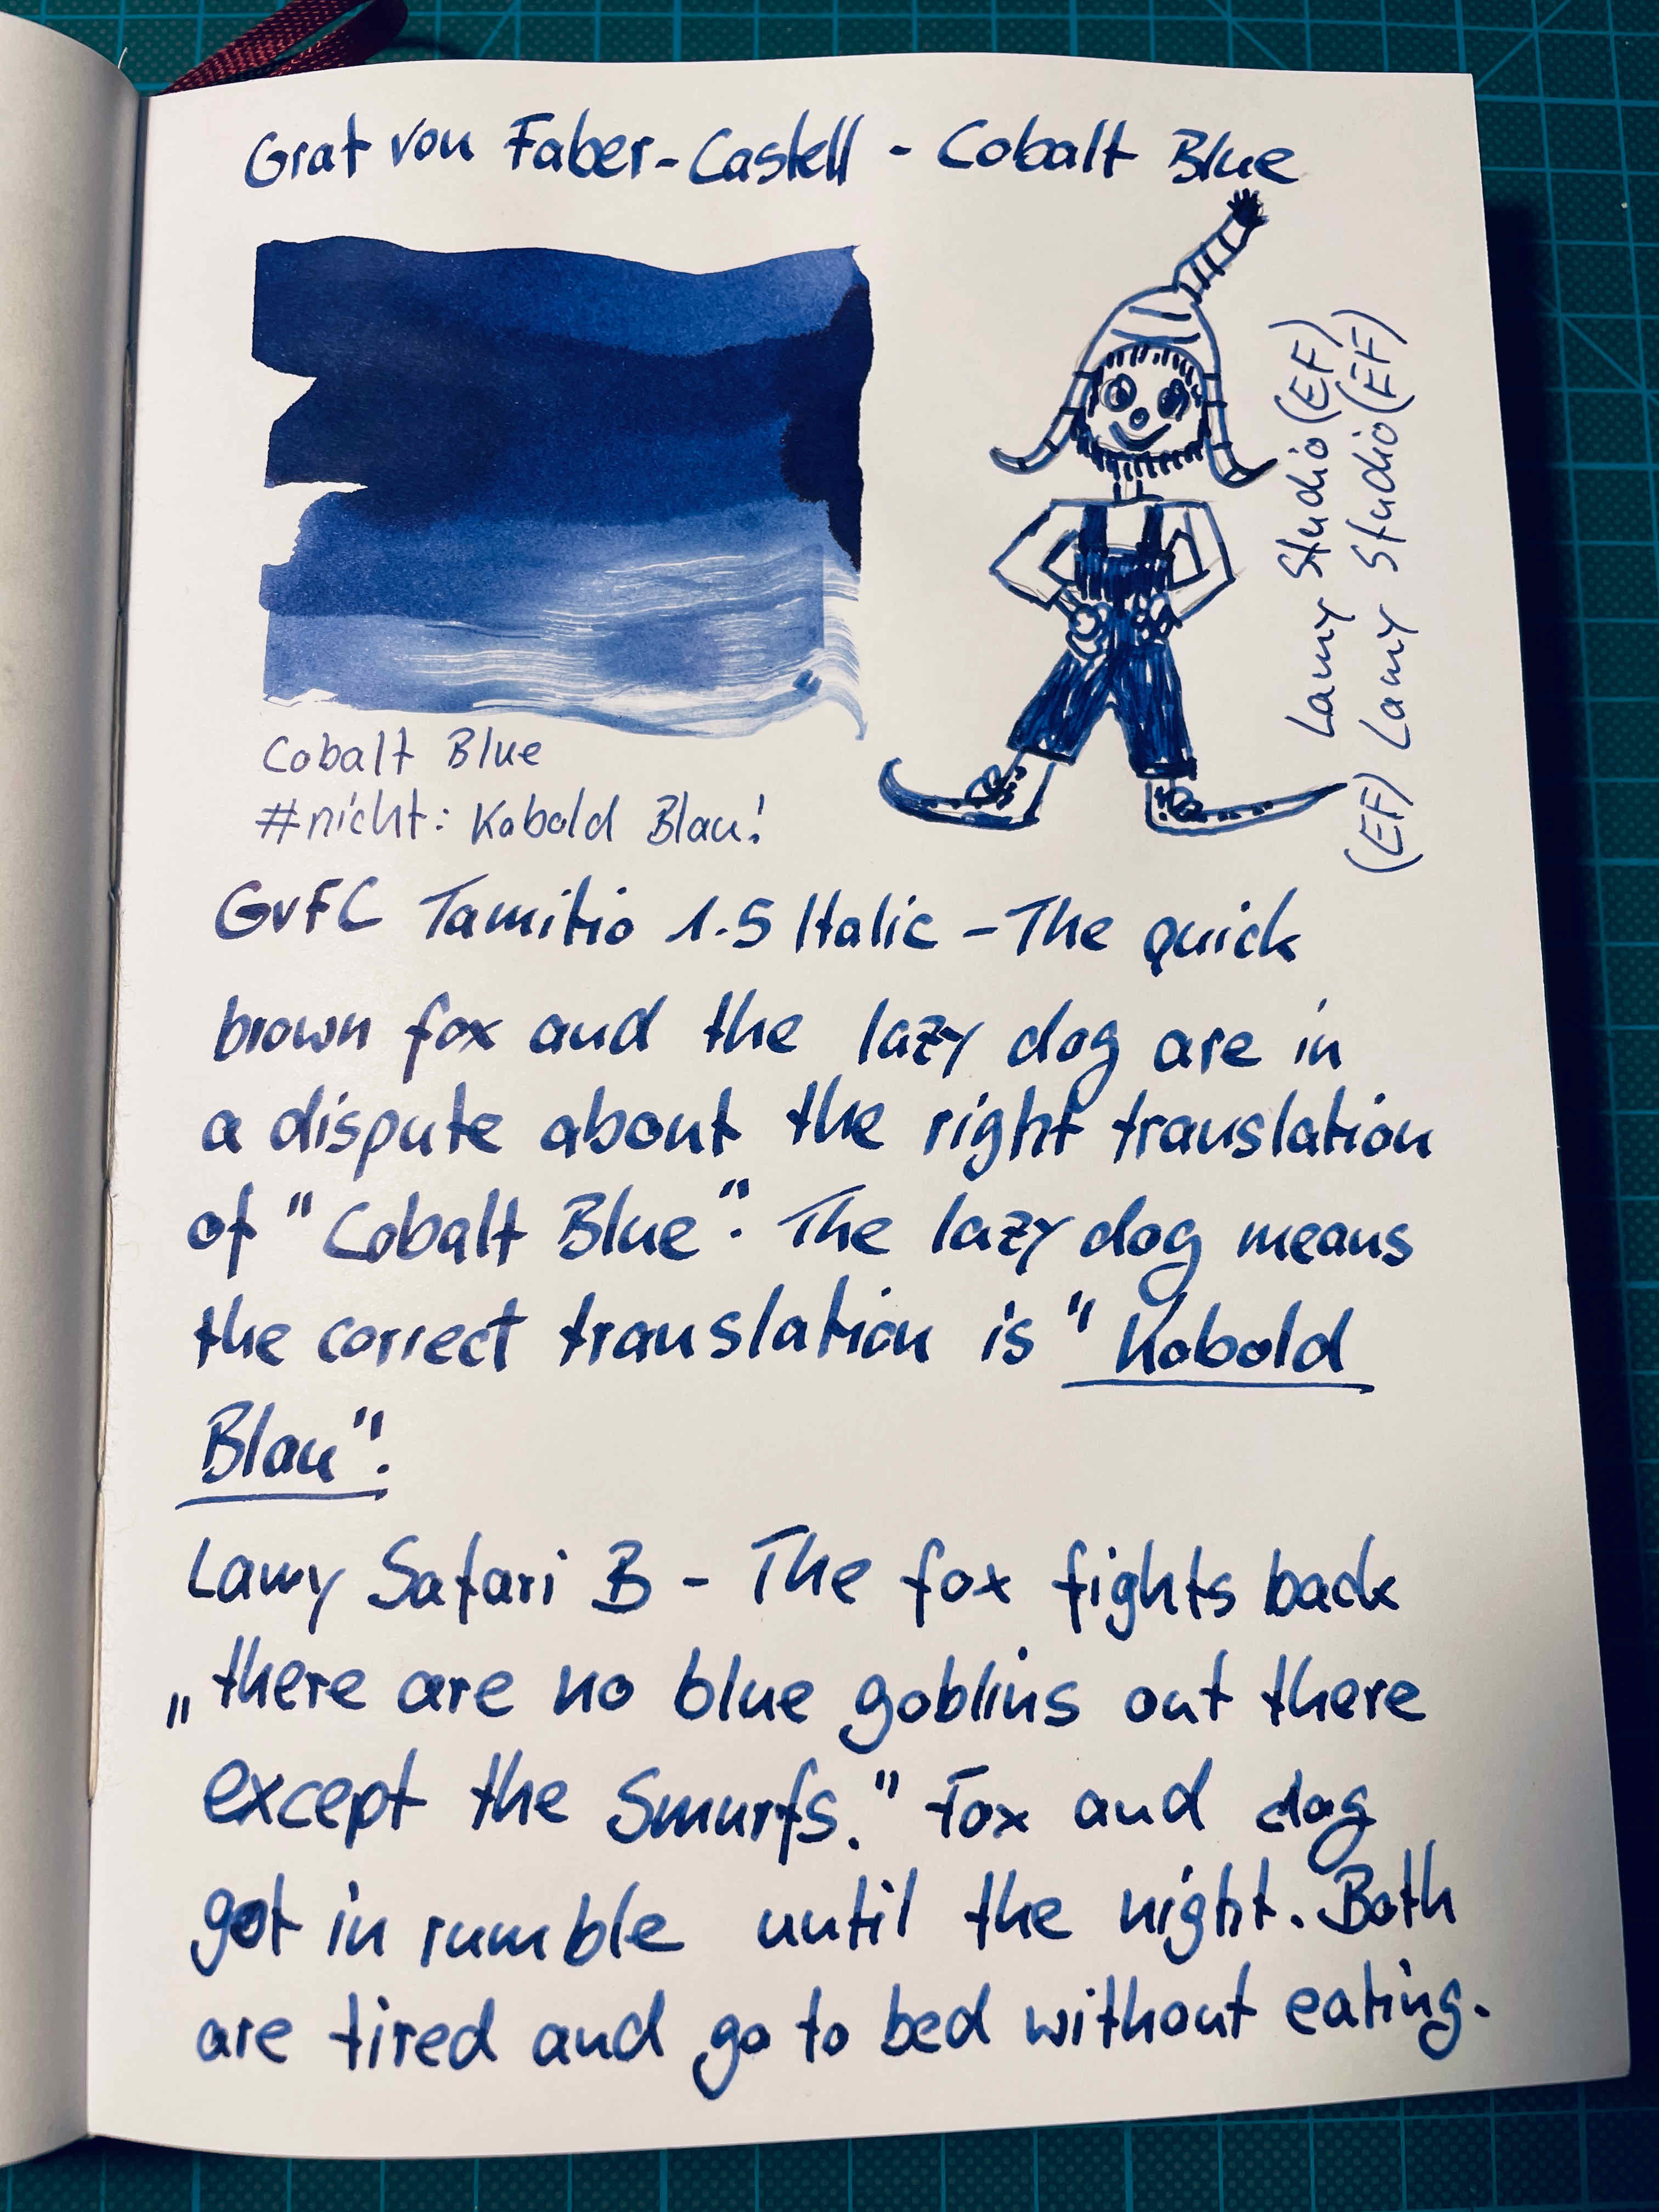 Graf von Faber-Castell - Cobalt Blue
Cobalt Blue
#nicht: Kobold Blau!
Lamy Studio (EF)
(EF) Lamy Studio (EF)
GvFC Tamitio 1.5 Italic - The quick
brown fox and the lazy dog are in
a dispute about the right translation
of "Cobalt Blue". The lazy dog means
the correct translation is "Kobold
Blau".
Lamy Safari B - The fox fights back
„there are no blue goblins out there
except the Smurfs." Fox and dog
got in rumble until the night. Both
are tired and go to bed without eating.